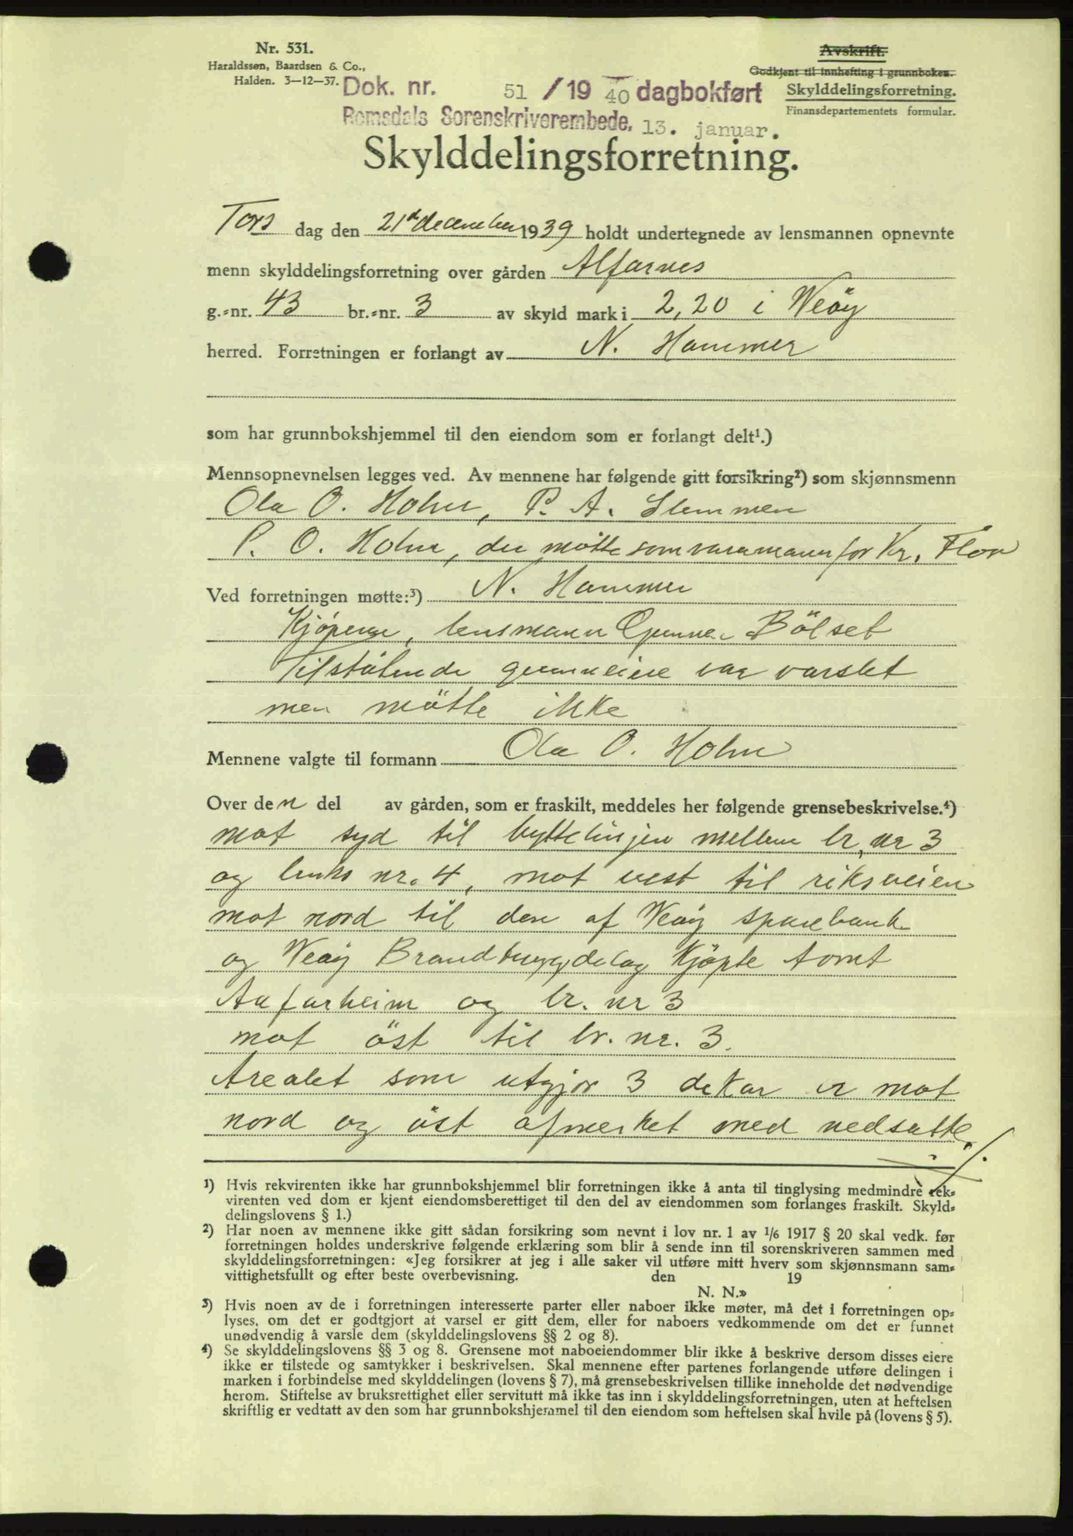 Nr. 531.
Haraldssøn, Baardsen & Co.,
Halden. 3—12—37.
Avskrift.
Godkjent til innhefting i grunnboken.
Skylddelingsforretning.
Finansdepartementets formular.
Dok. nr. 51 / 19 40 dagbokført
Romsdals Sorenskriverembede, 13. januar.
Skylddelingsforretning.
Tors dag den 21d december 1939 holdt undertegnede av lensmannen opnevnte
menn skylddelingsforretning over gården Alfarnes
g.-nr. 43 br.-nr. 3 av skyld mark i 2,20 i Weøy
herred. Forretningen er forlangt av N. Hammer
som har grunnbokshjemmel til den eiendom som er forlangt delt¹.)
Mennsopnevnelsen legges ved. Av mennene har følgende gitt forsikring²) som skjønnsmenn
Ola O. Holm, P. A. Slemmen
P. O. Holm, der møtte som varamann for Kr. Flov
Ved forretningen møtte:³) N. Hammer
Kjøperne, lensmann Gunnar Bölset
Tilstøtende grunneiere var varslet
men møtte ikke
Mennene valgte til formann Ola O. Holm
Over den del av gården, som er fraskilt, meddeles her følgende grensebeskrivelse.⁴)
mot syd til byttelinjen mellem br. nr 3
og bruks nr. 4, mot vest til riksveien
mot nord til den af Weøy sparebank
og Weøy Brandtrygdelag kjøpte tomt
Aufarheim og br. nr 3
mot öst til br. nr. 3.
Arealet som utgjør 3 dekar er mot
nord og öst afmerket med nedsatte
./.
¹) Hvis rekvirenten ikke har grunnbokshjemmel blir forretningen ikke å anta til tinglysing medmindre rek-
virenten ved dom er kjent eiendomsberettiget til den del av eiendommen som forlanges fraskilt. Skyld-
delingslovens § 1.)
²) Har noen av mennene ikke gitt sådan forsikring som nevnt i lov nr. 1 av 1/6 1917 § 20 skal vedk. før
forretningen holdes underskrive følgende erklæring som blir å sende inn til sorenskriveren sammen med
skylddelingsforretningen: «Jeg forsikrer at jeg i alle saker vil utføre mitt hverv som skjønnsmann sam-
vittighetsfullt og efter beste overbevisning. den 19
N. N.»
³) Hvis noen av de i forretningen interesserte parter eller naboer ikke møter, må det i forretningen op-
lyses, om det er godtgjort at varsel er gitt dem, eller for naboers vedkommende om det er funnet
unødvendig å varsle dem (skylddelingslovens §§ 2 og 8).
⁴) Se skylddelingslovens §§ 3 og 8. Grensene mot naboeiendommer blir ikke å beskrive dersom disses eiere
ikke er tilstede og samtykker i beskrivelsen. Skal mennene efter partenes forlangende utføre delingen i
marken i forbindelse med skylddelingen (lovens § 7), må grensebeskrivelsen tillike inneholde det nødvendige
herom. Stiftelse av bruksrettighet eller servitutt må ikke tas inn i skylddelingsforretningen, uten at heftelsen
skriftlig er vedtatt av den som har grunnbokshjemmel til den eiendom som heftelsen skal hvile på (lovens § 5).